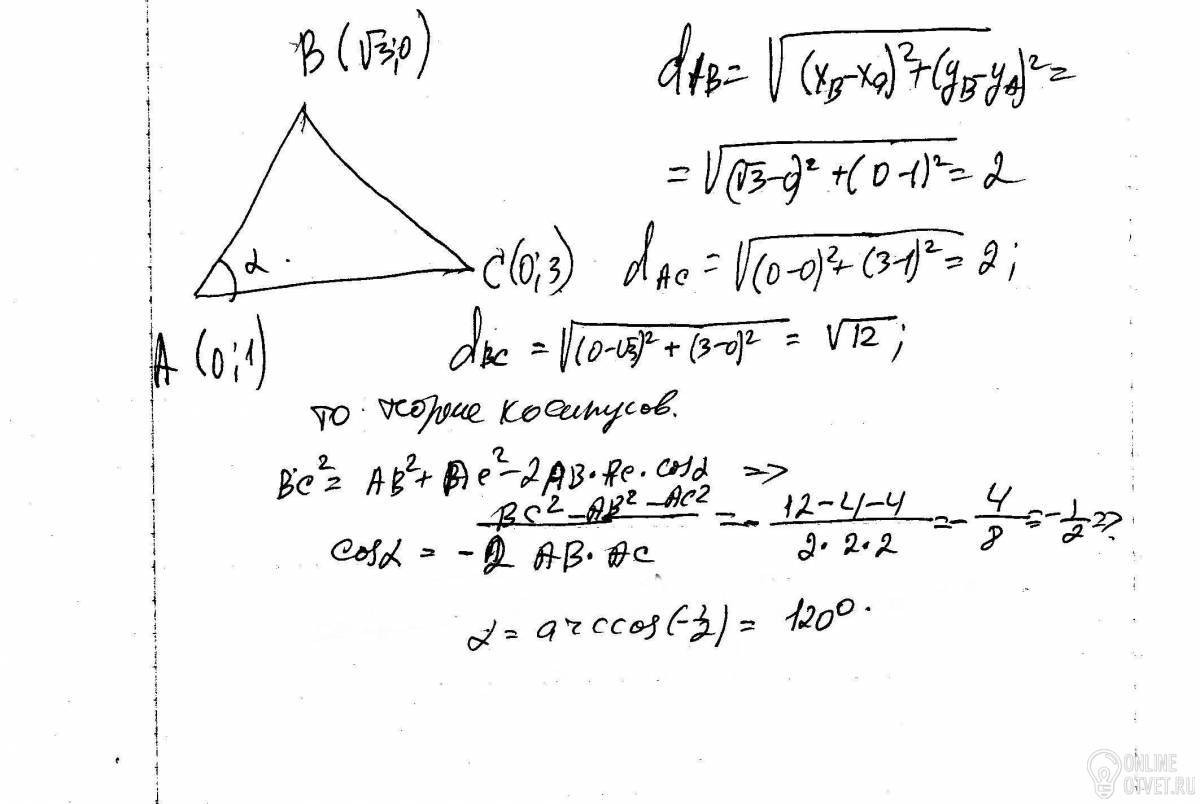 B (√3;0)
d_AB = √((x_B-x_A)²+(y_B-y_A)² =
= √((√3-0)² + (0-1)² = 2
α
C(0;3)
d_AC = √((0-0)²+(3-1)² = 2;
A (0;1)
d_BC = √((0-√3)²+(3-0)² = √12;
по теореме косинусов.
BC² = AB² + AC² - 2AB·AC·cosα =>
cosα = (BC²-AB²-AC²)/(-2 AB·AC) = - (12-4-4)/(2·2·2) = - 4/8 = - 1/2 =>
α = arccos(-1/2) = 120°.
ONLINE
OTVET.RU